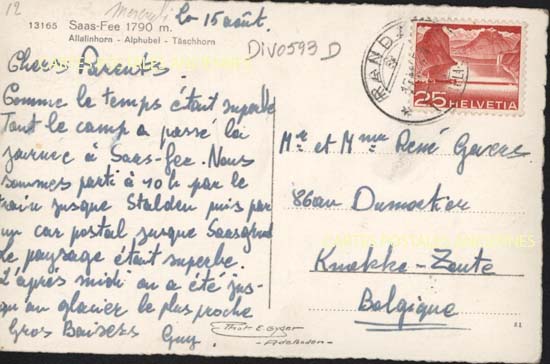 12
Mercredi
le 15 août.
13165 Saas-Fee 1790 m.
Allalinhorn - Alphubel - Täschhorn
DIV0593D
Chers Parents.
Comme le temps était superbe
Tout le camp a passé la
journée à Saas-fee. Nous
sommes parti à 10 h par le
train jusque Stalden puis par
un car postal jusque Saasgrund
le paysage était superbe.
L'après midi on a été jus-
qu'au glacier le plus proche
Gros Baisers Guy
RANDA
25 HELVETIA
Mr et Mme René Gevers
Dumortier
Knokke-Zoute
Belgique
CARTES POSTALES ANCIENNES
Phot. E. Gyger
-Adelboden-